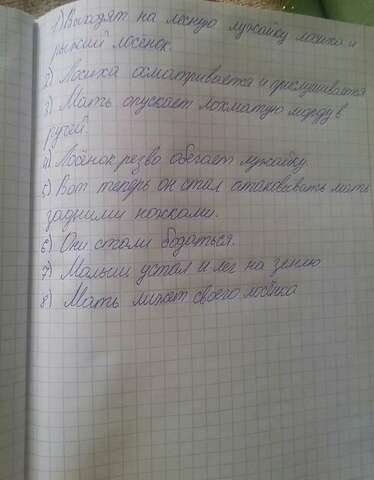 1) Выходят на лесную лужайку лосиха и
рыжий лосенок.
2) Лосиха осматривается и прислушивается
3) Мать опускает лохматую морду в
ручей.
4) Лосёнок резво обегает лужайку.
5) Вот теперь он стал атаковывать мать
задними ножками.
6) Они стали бодаться.
7) Малыш устал и лег на землю
8) Мать лижет своего лосёнка